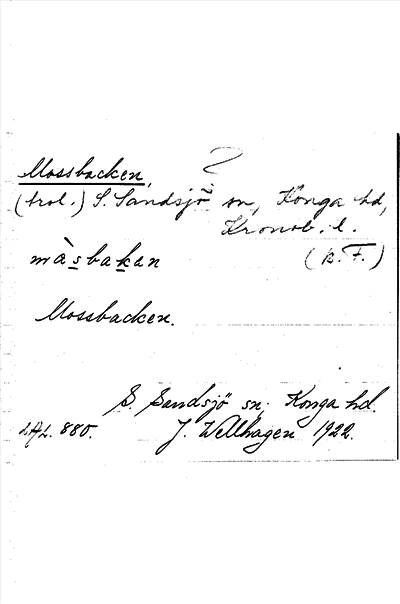 Mossbacken,
(trol.) S. Sandsjö sn, Konga hd,
Kronob. l.
màsbakan (R.F.)
Mossbacken.
S. Sandsjö sn, Konga hd.
LAL. 880. J. Wellhagen 1922.